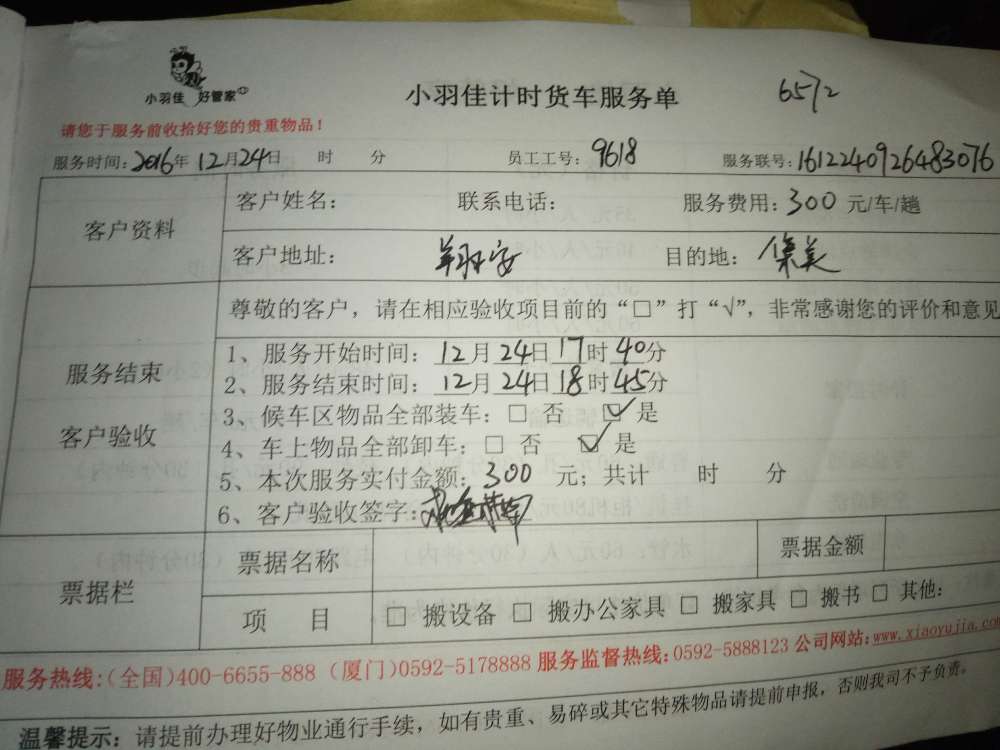 小羽佳 好管家
小羽佳计时货车服务单
6572
请您于服务前收拾好您的贵重物品!
服务时间:2016年12月24日 时 分 员工工号:9618 服务联号:1612240926483076
客户资料
客户姓名: 联系电话: 服务费用:300元/车/趟
客户地址: 翔安 目的地: 集美
服务结束
客户验收
尊敬的客户,请在相应验收项目前的“□”打“√”,非常感谢您的评价和意见
1、服务开始时间:12月24日17时40分
2、服务结束时间:12月24日18时45分
3、候车区物品全部装车:□ 否 ☑ 是
4、车上物品全部卸车:□ 否 ☑ 是
5、本次服务实付金额:300 元;共计 时 分
6、客户验收签字:
票据栏
票据名称 票据金额
项 目 □ 搬设备 □ 搬办公家具 □ 搬家具 □ 搬书 □ 其他:
服务热线:(全国)400-6655-888 (厦门)0592-5178888 服务监督热线:0592-5888123 公司网站:www.xiaoyujia.com
温馨提示:请提前办理好物业通行手续,如有贵重、易碎或其它特殊物品请提前申报,否则我司不予负责。